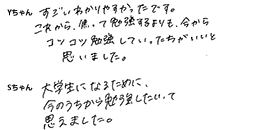 Yちゃん すごいわかりやすかったです。
これから、焦って勉強するよりも、今から
コツコツ勉強していったちがいいと
思いました。
Sちゃん 大学生になるために、
今のうちから勉強したいって
思えました。